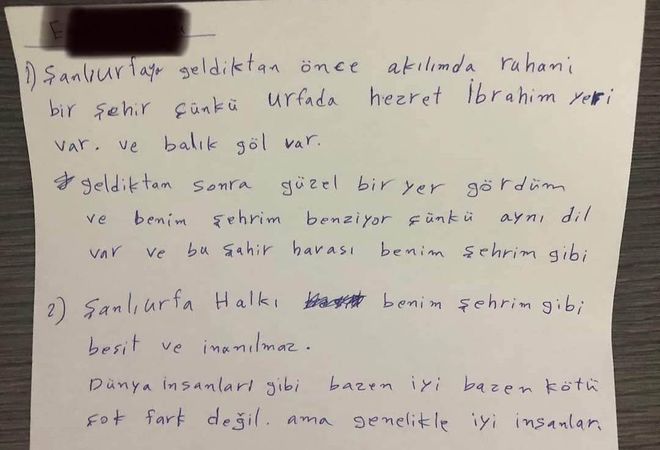 1) Şanlıurfaya geldiktan önce akılımda ruhani
bir şehir çünkü Urfada hezret İbrahim yeri
var. ve balık göl var.
geldiktan sonra güzel bir yer gördüm
ve benim şehrim benziyor çünkü aynı dil
var ve bu şahir havası benim şehrim gibi
2) Şanlıurfa Halkı benim şehrim gibi
besit ve inanılmaz.
Dünya insanları gibi bazen iyi bazen kötü
çok fark değil. ama genelikle iyi insanlar.